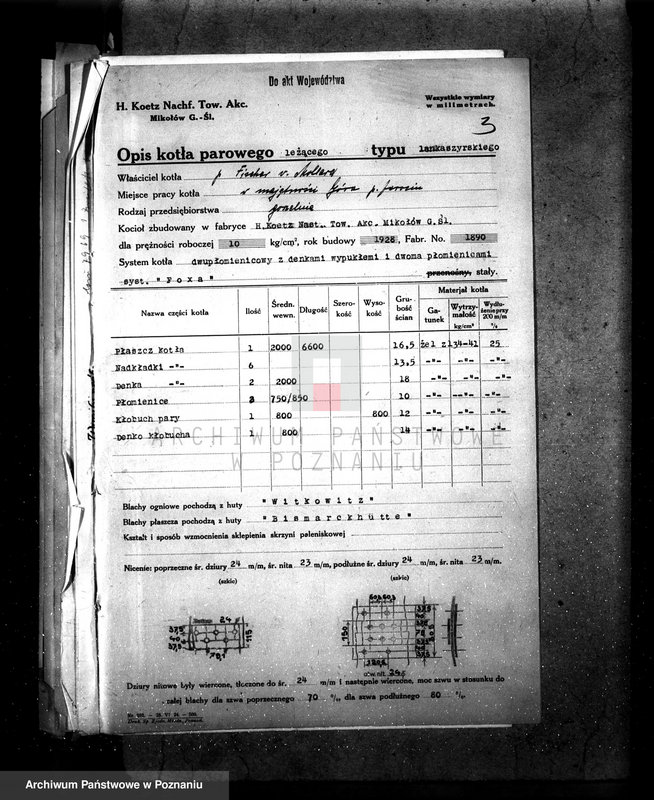 Do akt Województwa
H. Koetz Nachf. Tow. Akc.
Mikołów G.-Śl.
Wszystkie wymiary
w milimetrach.
3
Opis kotła parowego leżącego typu lankaszyrskiego
Właściciel kotła p Fischer v.
Miejsce pracy kotła w majętności Góra p. Jarocin
Rodzaj przedsiębiorstwa gorzelnia
Kocioł zbudowany w fabryce H.Koetz Nast. Tow. Akc. Mikołów G.Śl.
dla prężności roboczej 10 kg/cm², rok budowy 1928, Fabr. No. 1890
System kotła dwupłomienicowy z denkami wypukłemi i dwoma płomienicami
syst. "Foxa" przenośny, stały.
Nazwa części kotła Ilość Średn. wewn. Długość Szero-kość Wyso-kość Gru-bość ścian Materjał kotła Ga-tunek Wytrzy-małość kg/cm² Wydłu-żenie przy 200 m/m %
Płaszcz kotła 1 2000 6600 16,5 żel zl 34-41 25
Nadkładki -"- 6 13,5 -"- -"- -"-
Denka -"- 2 2000 18 -"- -"- -"-
Płomienice 2 750/850 10 -"- -"- -"-
Kłobuch pary 1 800 800 12 -"- -"- -"-
Denko kłobucha 1 800 14 -"- -"- -"-
ARCHIWUM PAŃSTWOWE
W POZNANIU
Blachy ogniowe pochodzą z huty "Witkowitz"
Blachy płaszcza pochodzą z huty "Bismarckhütte"
Kształt i sposób wzmocnienia sklepienia skrzyni paleniskowej
Nicenie: poprzeczne śr. dziury 24 m/m, śr. nita 23 m/m, podłużne śr. dziury 24 m/m, śr. nita 23 m/m.
(szkic) (szkic)
24
37,5
40
37,5
115
70,1
150
37,5
Dziury nitowe były wiercone, tłoczone do śr. 24 m/m i następnie wiercone, moc szwu w stosunku do
całej blachy dla szwa poprzecznego 70 %, dla szwa podłużnego 80 %.
Archiwum Państwowe w Poznaniu